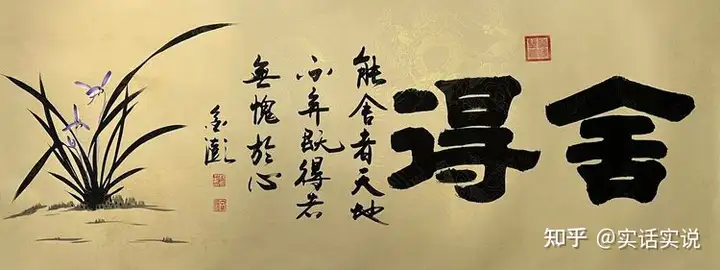 舍得
能舍者天地
不弃既得者
無愧於心
金澎
知乎 @实话实说